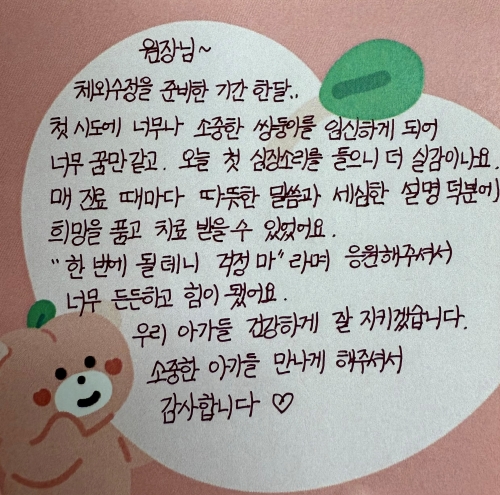 원장님~
체외수정을 준비한 기간 한달..
첫 시도에 너무나 소중한 쌍둥이를 임신하게 되어
너무 꿈만같고. 오늘 첫 심장소리를 들으니 더 실감이나요.
매 진료 때마다 따뜻한 말씀과 세심한 설명 덕분에
희망을 품고 치료 받을수 있었어요.
"한 번에 될테니 걱정 마"라며 응원해주셔서
너무 든든하고 힘이 됐어요.
우리 아가들 건강하게 잘 지키겠습니다.
소중한 아가들 만나게 해주셔서
감사합니다 ♡